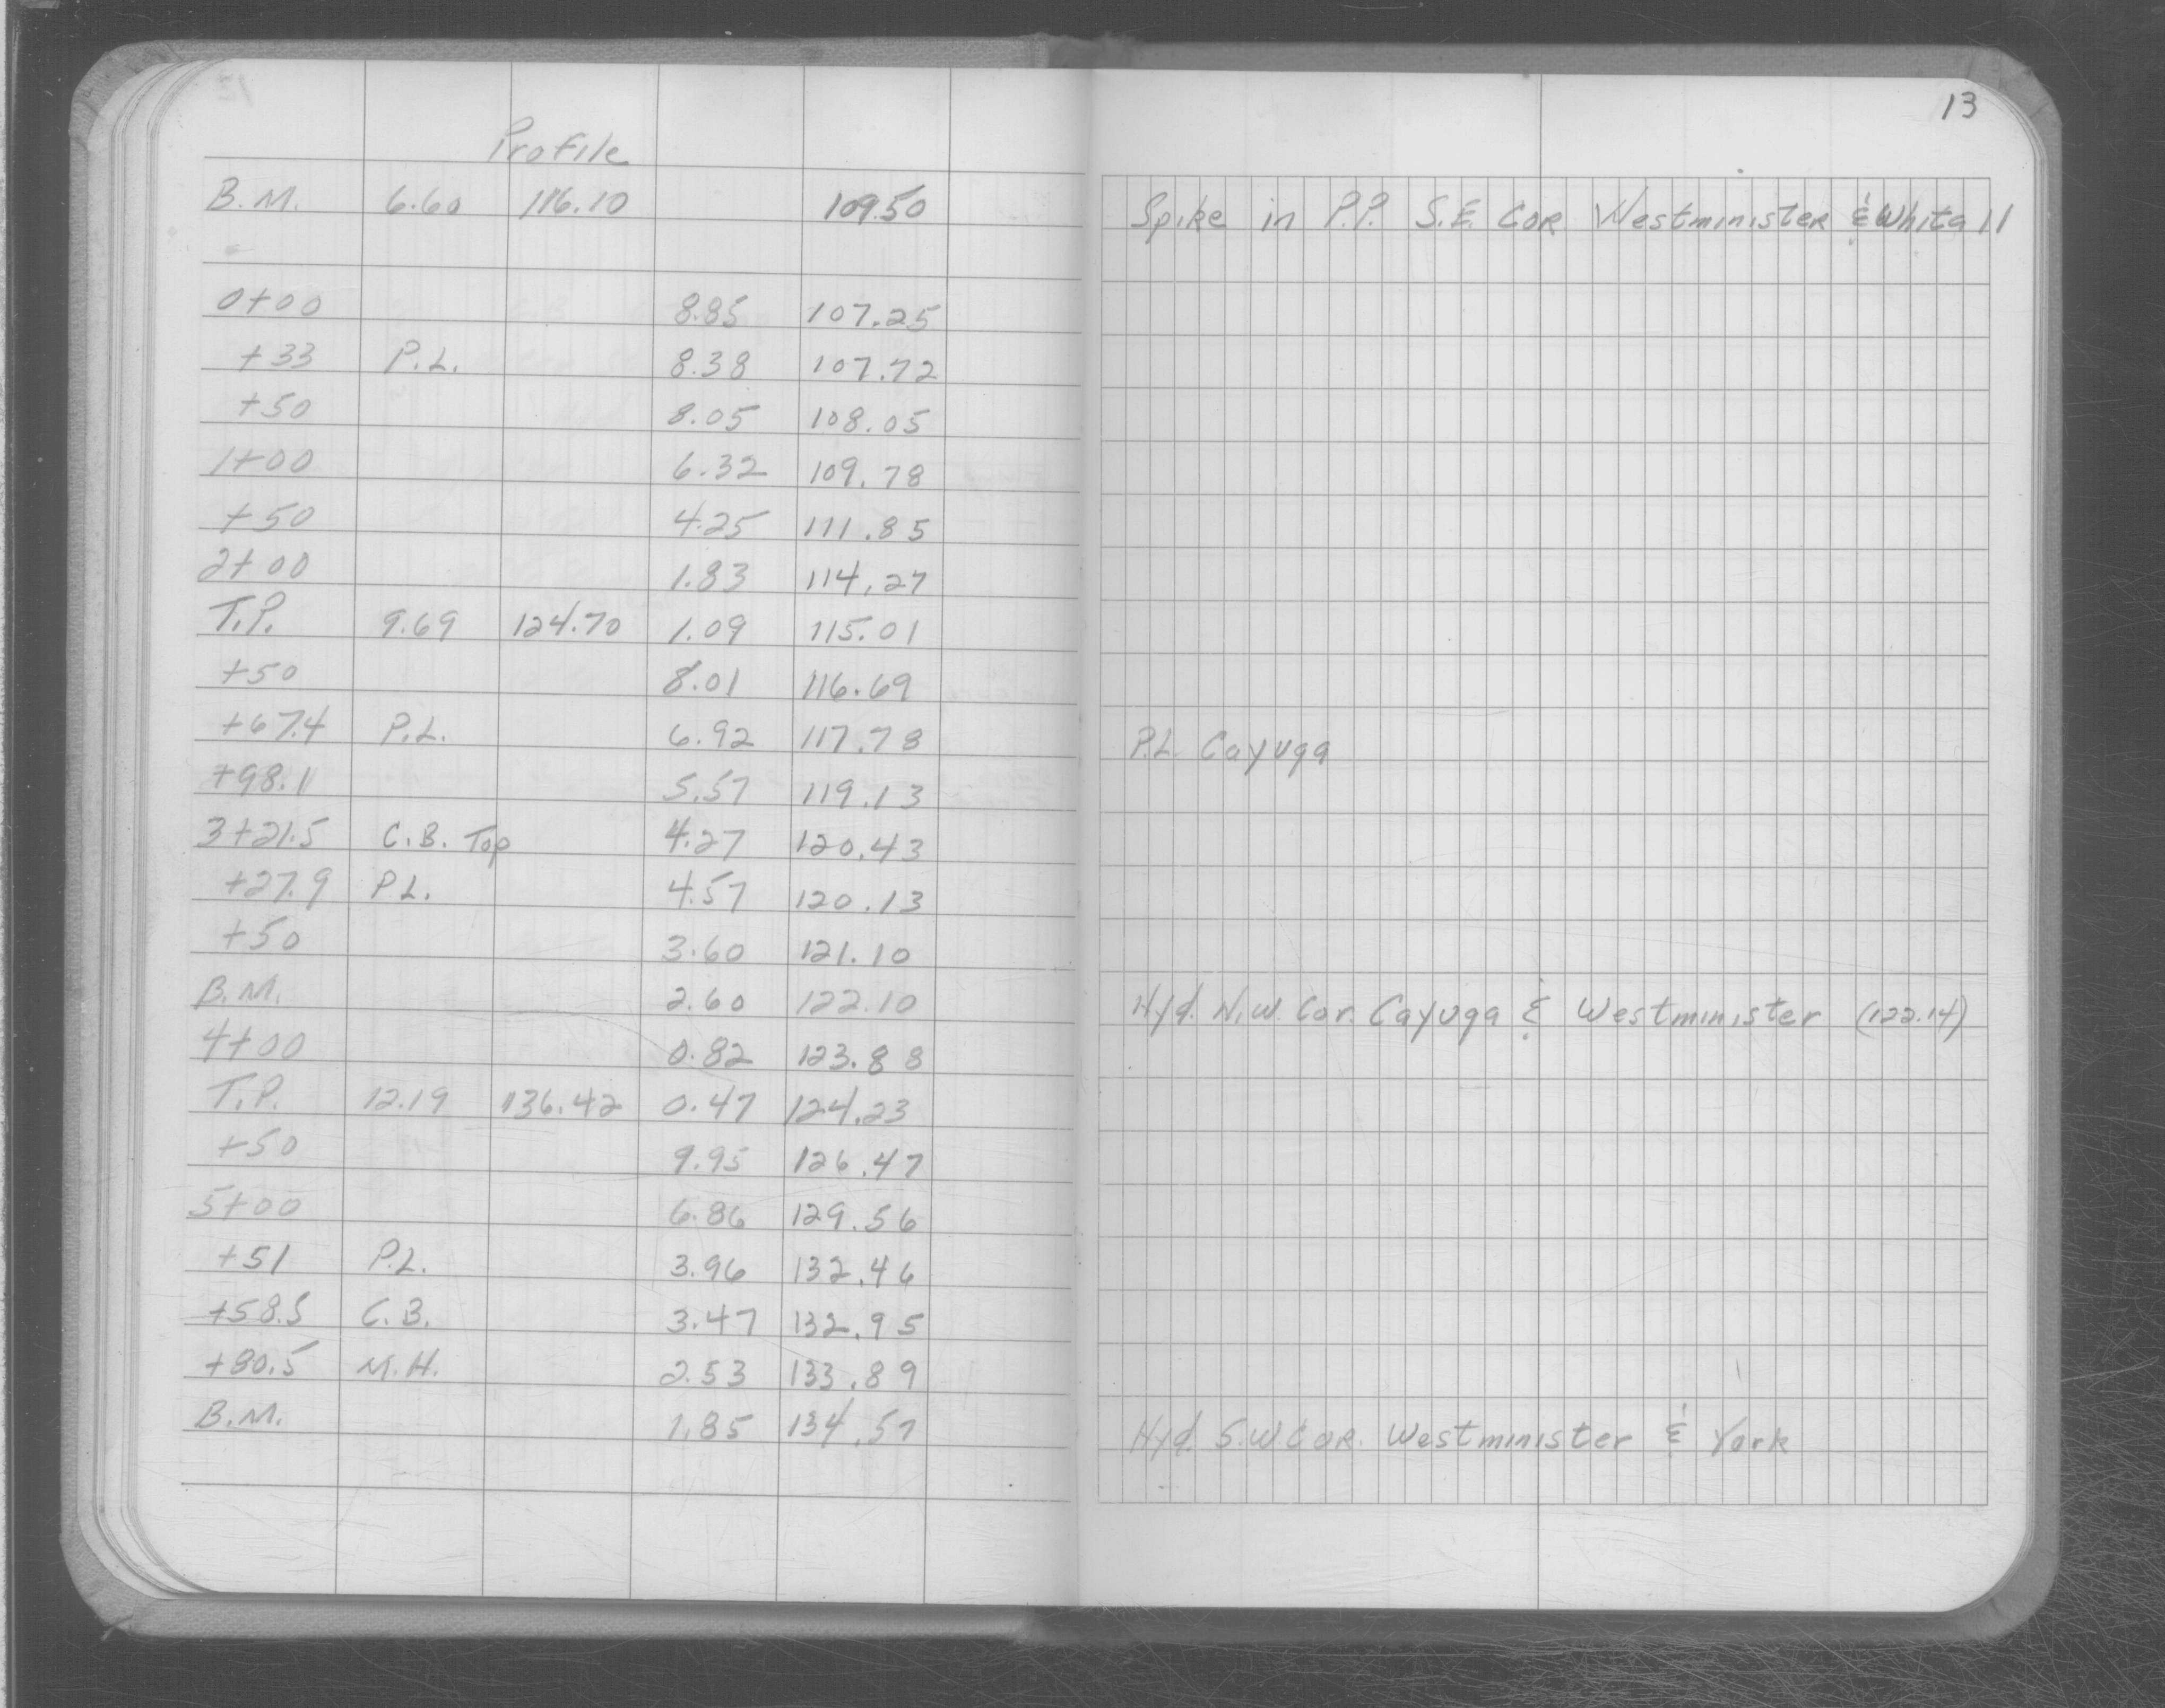 13
Profile
B.M. 6.60 116.10 109.50 Spike in P.P. S.E. Cor Westminister & Whitall
0+00 8.85 107.25
+33 P.L. 8.38 107.72
+50 8.05 108.05
1+00 6.32 109.78
+50 4.25 111.85
2+00 1.83 114.27
T.P. 9.69 124.70 1.09 115.01
+50 8.01 116.69
+67.4 P.L. 6.92 117.78 P.L. Cayuga
+98.1 5.57 119.13
3+21.5 C.B. Top 4.27 120.43
+27.9 P.L. 4.57 120.13
+50 3.60 121.10
B.M. 2.60 122.10 Hyd. N.W. Cor. Cayuga & Westminister (122.14)
4+00 0.82 123.88
T.P. 12.19 136.42 0.47 124.23
+50 9.95 126.47
5+00 6.86 129.56
+51 P.L. 3.96 132.46
+58.5 C.B. 3.47 132.95
+80.5 M.H. 2.53 133.89
B.M. 1.85 134.57 Hyd. S.W Cor. Westminister & York